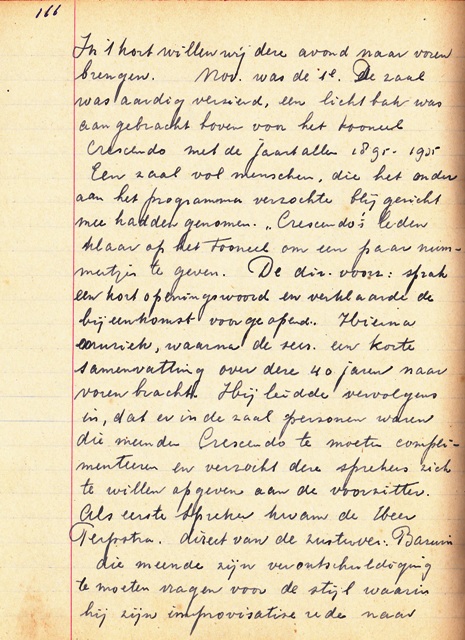 166
In 't kort willen wij deze avond naar voren
brengen. Nov. was de 1e. De zaal
was aardig versierd, een lichtbak was
aangebracht boven voor het tooneel
Crescendo met de jaartallen 1895 - 1935
Een zaal vol menschen, die het onder
aan het programma verzochte blij gezicht
mee hadden genomen. „Crescendo's leden
klaar op het tooneel om een paar num-
mertjes te geven. De dir. voorz: sprak
een kort openingswoord en verklaarde de
bijeenkomst voor geopend. Hierna
muziek, waarna de secr. een korte
samenvatting over deze 40 jaren naar
voren bracht. Hij leidde vervolgens
in, dat er in de zaal personen waren
die meenden Crescendo te moeten compli-
menteeren en verzocht deze sprekers zich
te willen opgeven aan de voorzitter.
Als eerste spreker kwam de Heer
Terpstra. direct van de zusterver:
die meende zijn verontschuldiging
te moeten vragen voor de stijl waarin
hij zijn improvisatise rede naar